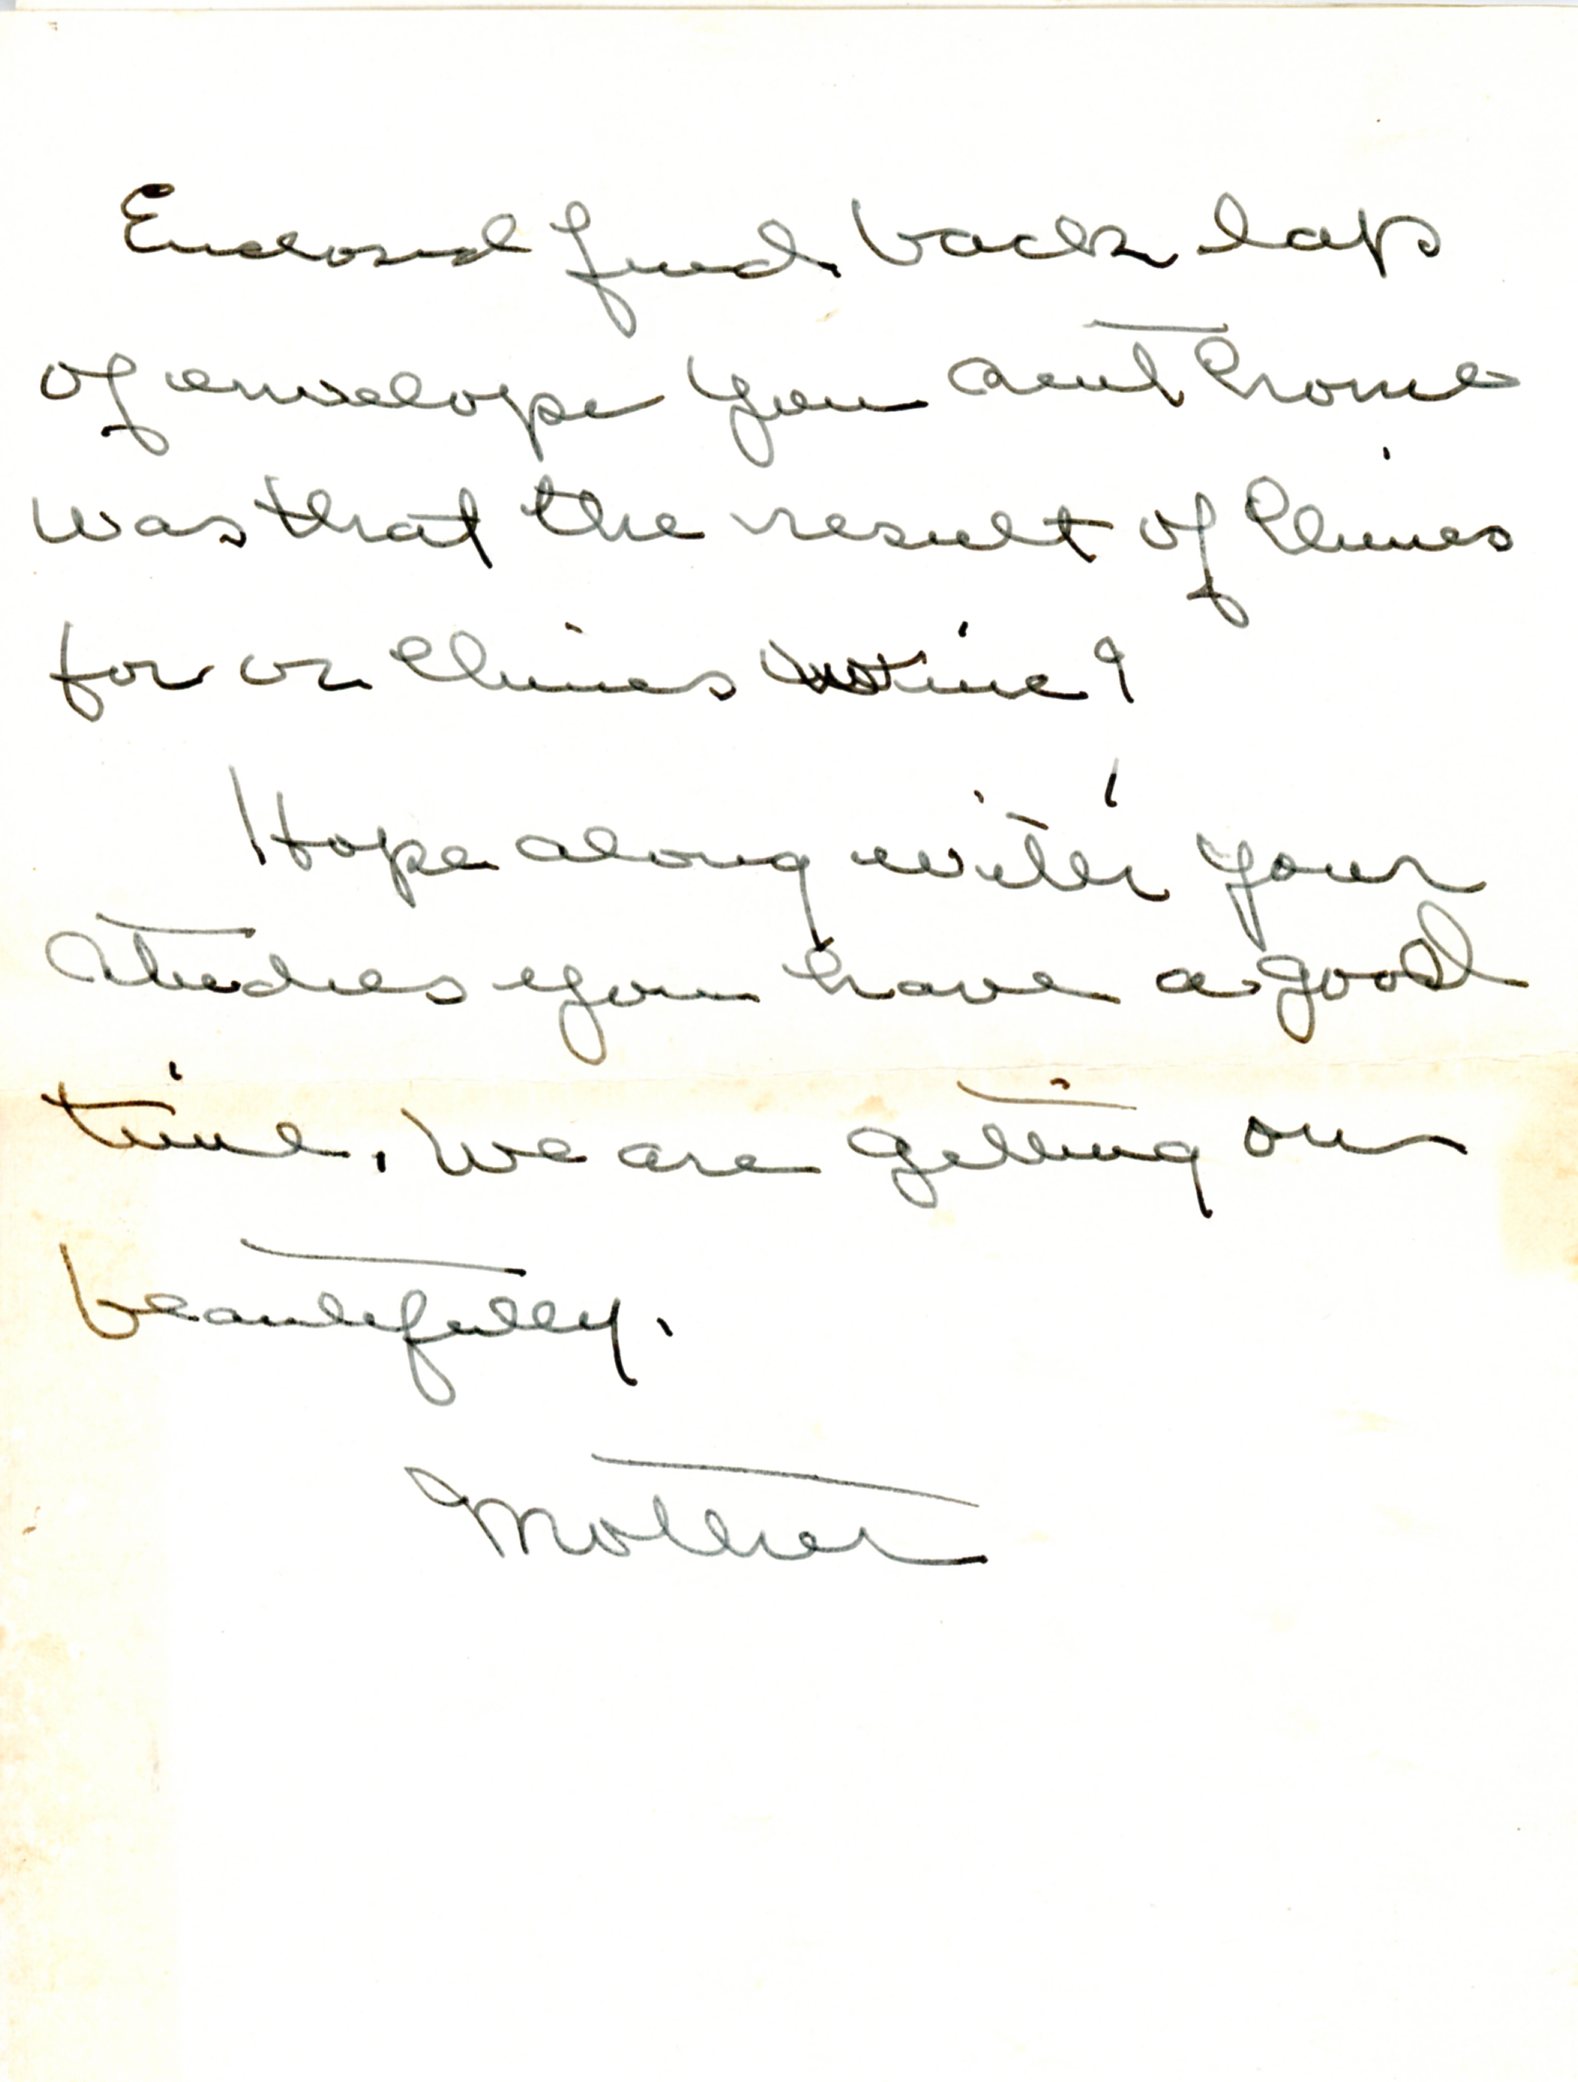 Enclosed find back lap
of envelope you sent home
was that the result of Chimes
for or Chimes time?
Hope along with your
studies you have a good
time. We are getting on
beautifully.
Mother